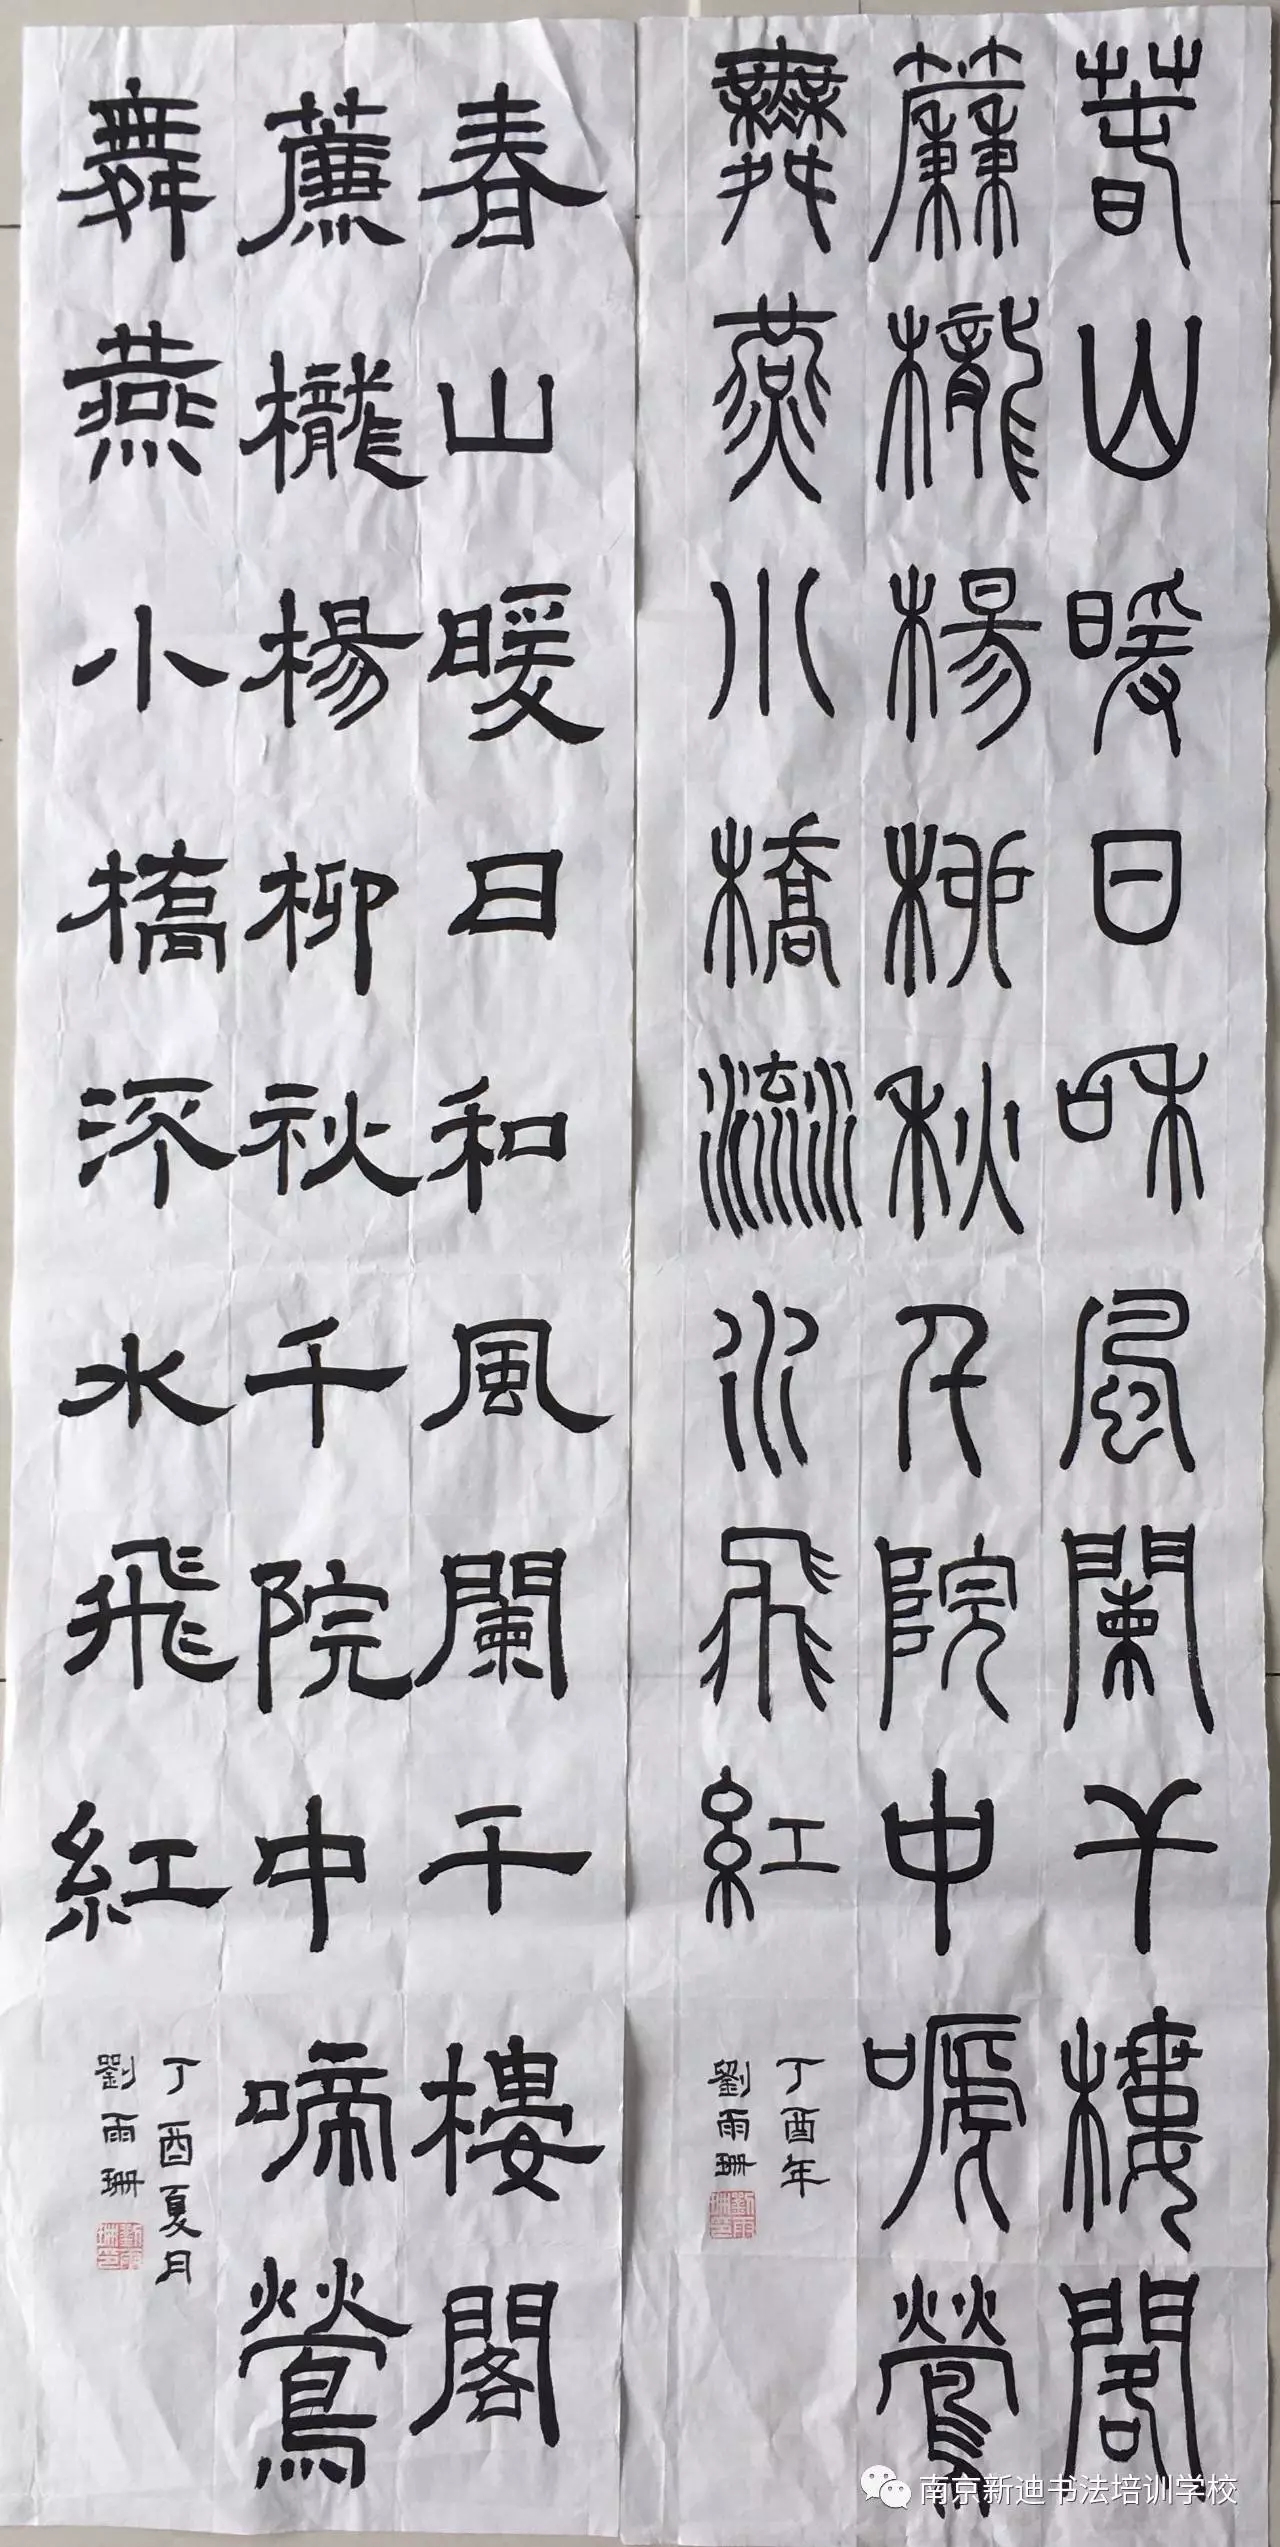 春山暖日和風闌干樓閣
簾櫳楊柳秋千院中啼鶯
舞燕小橋流水飛紅
丁酉年
劉雨珊
春山暖日和風闌干樓閣
簾櫳楊柳秋千院中啼鶯
舞燕小橋流水飛紅
丁酉夏月
劉雨珊
南京新迪书法培训学校